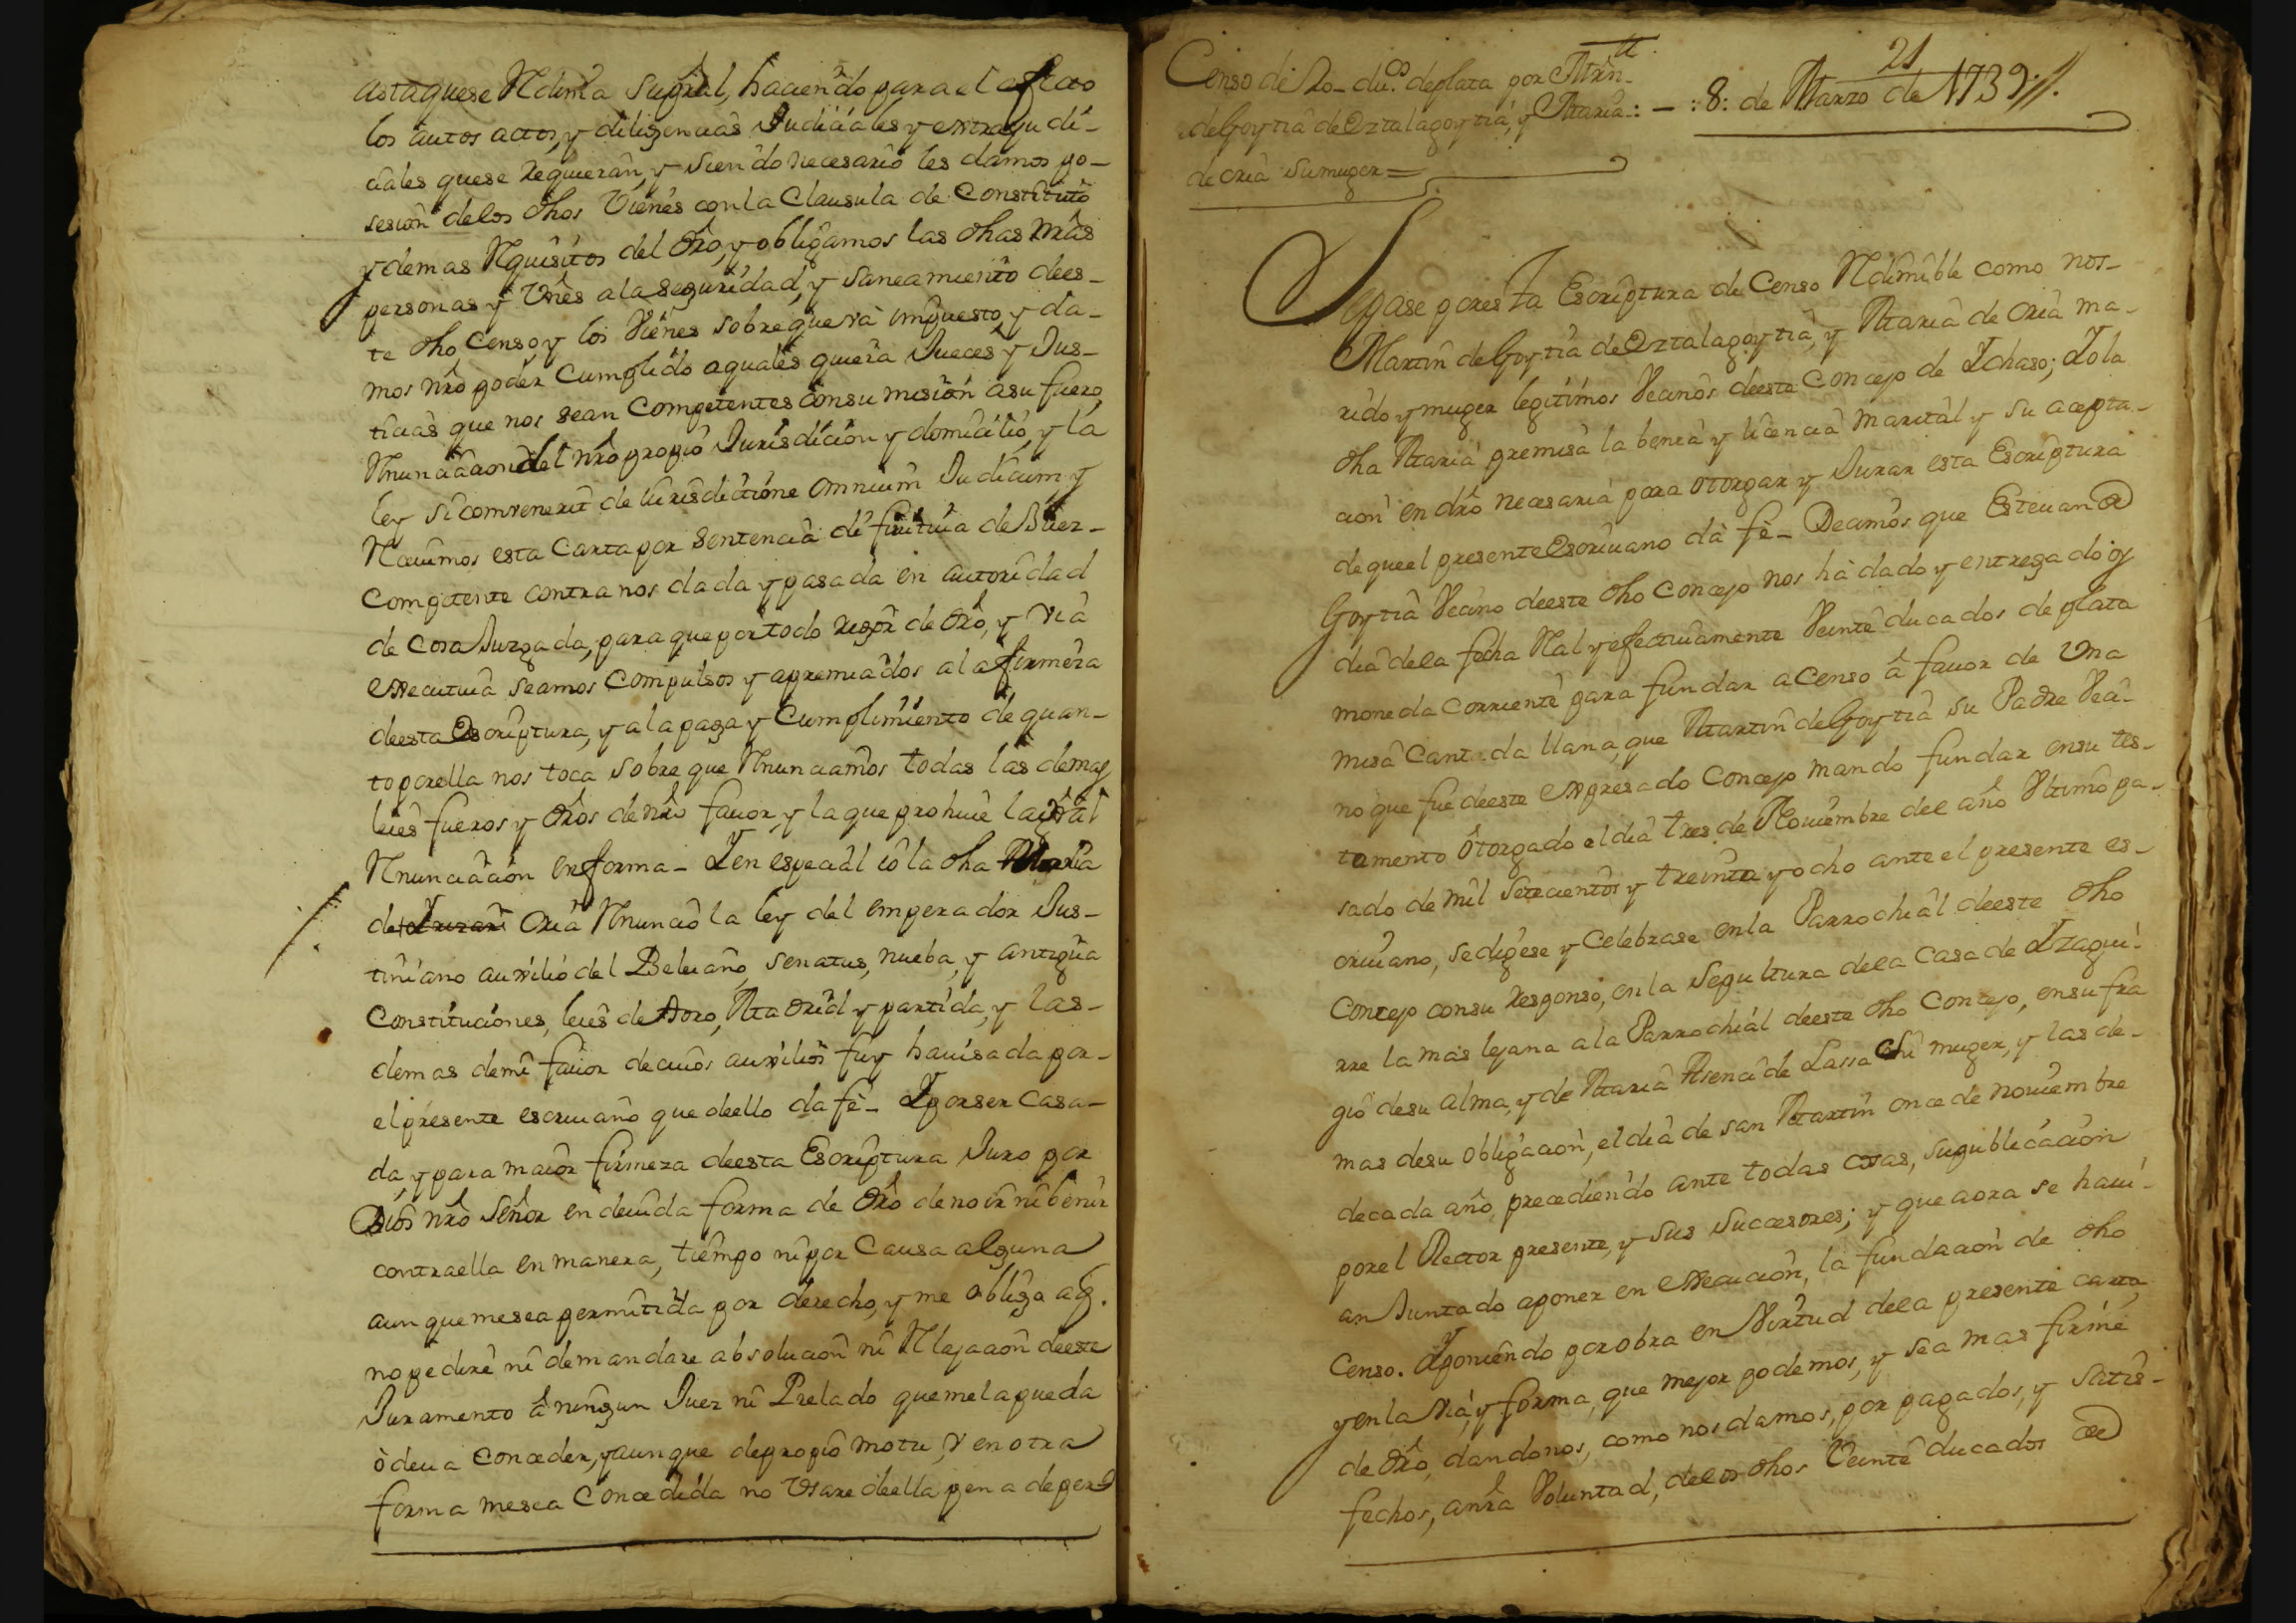 astaquese Rdima su pral, haciendo para el efecto
los autos actos, y diligencias Judiciales y extrajudi-
ciales quese requieran, y siendo necesario les damos po-
sesion delos dhos Vienes con la Clausula de Constituto
y demas Rquisitos del dro, y obligamos las dhas nras
personas y Vnes ala seguridad, y saneamiento dees-
te dho Censo, y los Vienes sobre que va impuesto, y da-
mos nro poder Cumplido a quales quiera Jueces y Jus-
ticias que nos sean Competentes consumision a su fuero,
Rnunciacion del nro propio Jurisdicion y domicilio, y la
ley si convenerit de iurisdictione omnium Judicum y
Rcevimos esta Carta por Sentencia difinitiva de Juez-
Competente contra nos dada y pasada en autoridad
de Cosa Juzgada, para que por todo rigor de dro, y via
executiva seamos Compulsos y apremiados ala firmeza
deesta Escriptura, y ala paga y Cumplimiento de quan-
to por ella nos toca sobre que Rnunciamos todas las demas
leies fueros y dros de nro favor, y la que prohive la gral
Rnunciacion en forma - Y en especial io la dha Maria
de Oria Rnuncio la ley del emperador Jus-
tiniano auxilio del Beleiano, senatus, nueba, y antigua
Constituciones, leies de toro, Madrid y partida, y las-
demas demi favor decuios auxilios fuy havisada por-
el presente escrivano que deello da fè - Y por ser Casa-
da, y para maior firmeza deesta Escriptura Juro por
Dios nro Señor en devida forma de dro de no ir ni benir
contra ella en manera, tiempo ni por Causa alguna
aun que mesea permitida por derecho, y me obligo a q.
no pedire ni demandare absolucion ni Rlajacion deeste
Juramento â ningun Juez ni Prelado que mela pueda
ò deva Conceder, y aunque de propio motu, y en otra
forma mesea Concedida no Usare deella pena de per-
Censo de 20- du.os de plata por Mrn-
de Goytia de Oztalagoytia, y Maria
de oria su muger =
: - : 8: de Marzo de 1739 //.
21
Sepase por esta Escriptura de Censo Rdimible como nos-
Martin de Goytia de Oztalagoytia, y Maria de oria ma-
rido y muger legitimos Vecinos deeste Concejo de Ichaso; Yo la
dha Maria premisa la benia y licencia marital y su acepta-
cion en dro necesaria para otorgar y Jurar esta Escriptura
de que el presente Escrivano dà fè - Decimos que Estevan de
Goytia Vecino deeste dho Concejo nos hà dado y entregado oy
dia dela fecha Ral y efectivamente Veinte ducados de plata
moneda Corriente para fundar a Censo â favor de Una
misa Cantada llana, que Martin de Goytia su Padre Veci-
no que fue deeste expresado Concejo mando fundar en su tes-
tamento ôtorgado el dia tres de Noviembre del año Ultimo pa-
sado de mil Setecientos y treinta y ocho ante el presente es-
crivano, se dijese y Celebrase en la Parrochial deeste dho
Concejo con su responso, en la Sepultura dela Casa de Yzagui-
rre la mas lejana a la Parrochial deeste dho Concejo, en sufra
gio desu alma, y de Maria Asencia de Lassa su muger, y las de-
mas desu obligacion, el dia de san Martin once de noviembre
decada año, precediendo ante todas cosas, su publicacion
por el Rector presente, y sus Succesores; y que aora se havi-
an Juntado a poner en execucion, la fundacion de dho
Censo. Y poniendo por obra en Virtud dela presente carta,
y en la via, y forma, que mejor podemos, y sea mas firme
de dro, dandonos, como nos damos, por pagados, y satis-
fechos, a nra Voluntad, delos dhos Veinte ducados de